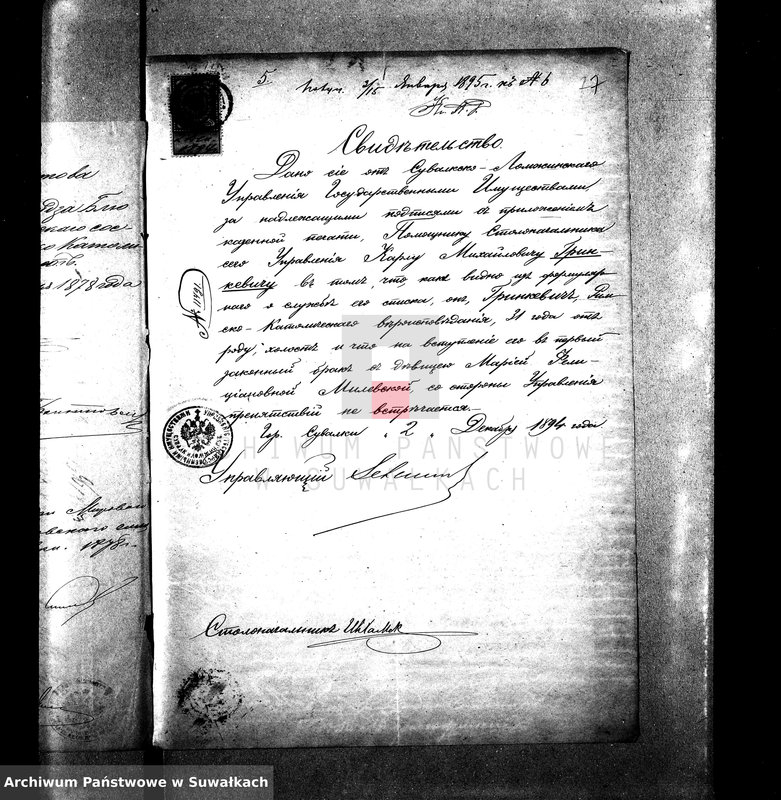 5 3/15 Января 1895 г. къ № 6 27
Свидѣтельство
Дано сіе отъ Сувалкско-Ломжинскаго
Управленія Государственными Имуществами
за надлежащими подписями съ приложеніемъ
казенной печати, Помощнику Столоначальника
сего Управленія Карлу Михайловичу Грин-
кевичу въ томъ, что какъ видно изъ формуляр-
наго о службѣ его списка, онъ, Гринкевичъ, Рим-
ско-Католическаго вѣроисповѣданія, 31 года отъ
роду, холостъ и что на вступленіе его въ первый
законный бракъ съ дѣвицею Маріей Фели-
ціановной Милевской, со стороны Управленія
препятствій не встрѣчается.
Гор. Сувалки „2„ Декабря 1894 года
Управляющій
Столоначальникъ
№ 11491
това
каго сос
ко Католи
я 1878 года
1878 г.
ARCHIWUM PAŃSTWOWE
W SUWAŁKACH
Archiwum Państwowe w Suwałkach